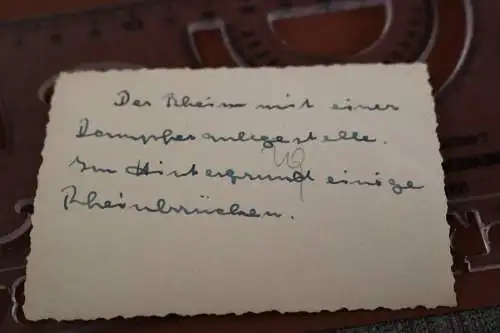 Der Rhein mit einer
Dampferanlegestelle.
Im Hintergrund einige
Rheinbrücken.